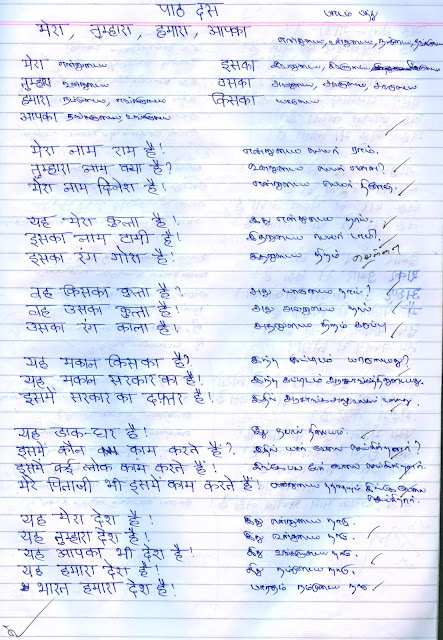 पाठ दस பாடம் பத்து
मेरा, तुम्हारा, हमारा, आपका
என்னுடைய, உன்னுடைய, நம்முடைய, உங்களுடைய
मेरा என்னுடைய इसका இவனுடைய, இவளுடைய,
तुम्हारा உன்னுடைய उसका அவனுடைய, அவளுடைய, அவருடைய
हमारा நம்முடைய, எங்களுடைய किसका யாருடைய
आपका தங்களுடைய, உங்களுடைய
मेरा नाम राम है! என்னுடைய பெயர் ராம்.
तुम्हारा नाम क्या है? உன்னுடைய பெயர் என்ன?
मेरा नाम दिनेश है! என்னுடைய பெயர் தினேஷ்.
यह मेरा कुत्ता है! இது என்னுடைய நாய்.
इसका नाम टामी है! இதனுடைய பெயர் டாமி.
इसका रंग गोरा है! இதனுடைய நிறம் வெள்ளை
वह किसका कुत्ता है? அது யாருடைய நாய்?
वह उसका कुत्ता है! அது அவனுடைய நாய்
उसका रंग काला है! அதனுடைய நிறம் கருப்பு
यह मकान किसका है? இந்த கட்டிடம் யாருடையது?
यह मकान सरकार का है! இந்த கட்டிடம் அரசாங்கத்தினுடையது.
इसमें सरकार का दफ्तर है! இதில் அரசாங்க அலுவலகம் உள்ளது
यह डाक-घर है! இது தபால் நிலையம்.
इसमें कौन काम करते है? இதில் யார் வேலை செய்கின்றனர்?
इसमें कई लोक काम करते हैं! பேர் வேலை செய்கின்றனர்.
मेरे पिताजी भी इसमें काम करते हैं! என்னுடைய வேலை செய்கிறார்.
यह मेरा देश है! இது என்னுடைய நாடு.
यह तुम्हारा देश है! இது உன்னுடைய நாடு.
यह आपका भी देश है! இது உங்களுடைய நாடு.
यह हमारा देश है! இது நம்முடைய நாடு.
भारत हमारा देश है! பாரதம் நம்முடைய நாடு